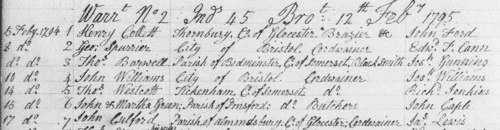 Warrt. No 2 Ind 45 Brot. 12th Feby 1795
5 Feby. 1794 1 Henry Collett Thornbury, C. of Glocester Brazier &c John Ford
8 do. 2 Geo. Spurrier City of Bristol Cordwainer Edwd. T. Cann
do do. 3 Thos. Barwell Parish of Bedminster, C. of Somerset, Black Smith Jos. Gunning
10 do. 4 John Williams City of Bristol. Cordwainer Jos. Williams
14 do 5 Thos. Westcott Tickenham, C. of Somerset do. Richd. Jenkins
16 do 6 John & Martha Green; Parish of do. Butchers John Caple
17 do, 7 John Parish of Almondsbury C. of Glocester; Cordwainer Jas. Lewis